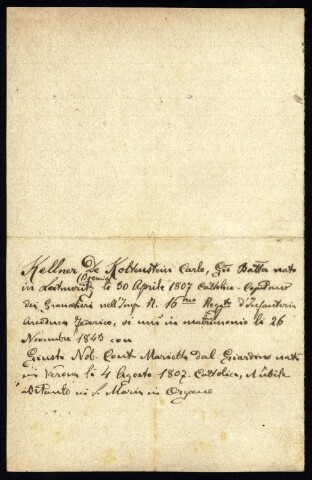 Kellner De Köttenstein Carlo, Gio Batta nato
(Boemia)
in Leitmeritz, le 30 Aprile 1807 Cattolico - Capitano
dei Granatieri nell'Imp. R. 16mo Regto d'Infanteria
Arciduca Federico, si unì in matrimonio le 26
Novembre 1843 con
Giusti Nob. Cont. Marietta dal Giardino nata
in Verona le 4 Agosto 1807. Cattolica, Nubile
abitante in S. Maria in Organo